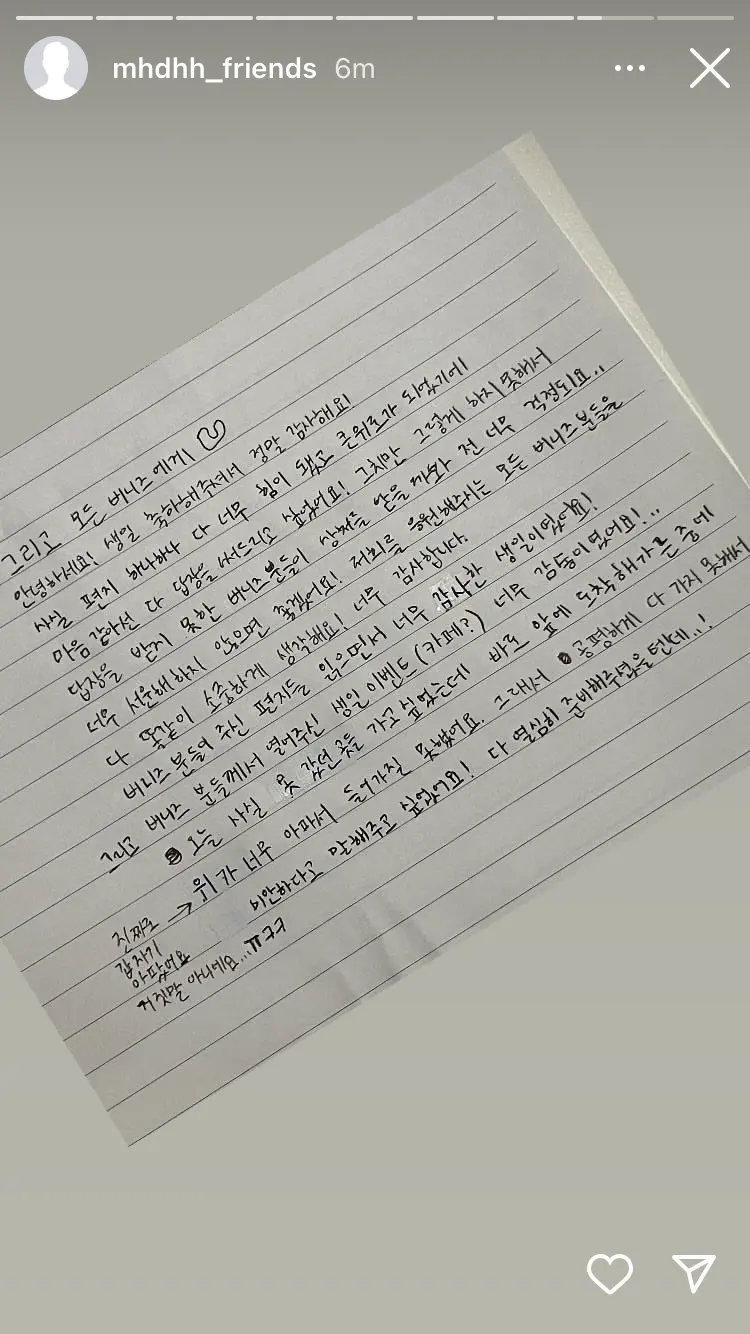 mhdhh_friends 6m
그리고 모든 버니즈에게!
안녕하세요! 생일 축하해주셔서 정말 감사해요!
사실 편지 하나하나 다 너무 힘이 됐고 큰위로가 되었기에
마음같아선 다 답장을 써드리고 싶었어요! 그치만 그렇게 하지 못해서
답장을 받지 못한 버니즈분들이 상처를 받을까봐 전 너무 걱정되요..
너무 서운해하지 않으면 좋겠어요! 저희를 응원해주시는 모든 버니즈분들을
다 똑같이 소중하게 생각해요! 너무 감사합니다.
버니즈 분들이 주신 편지들 읽으면서 너무 감사한 생일이었어요!
그리고 버니즈 분들께서 열어주신 생일이벤트(카페?) 너무 감동이었어요!..
오늘 사실 못 갔던 곳들 가고 싶었는데 바로 앞에 도착해가는 중에
위가 너무 아파서 들어가질 못했어요. 그래서 공평하게 다 가지 못해서
미안하다고 말해주고 싶었어요! 다 열심히 준비해주셨을텐데..!
진짜로 →
갑자기
아팠어요
거짓말 아니에요...ㅠㅋㅋ